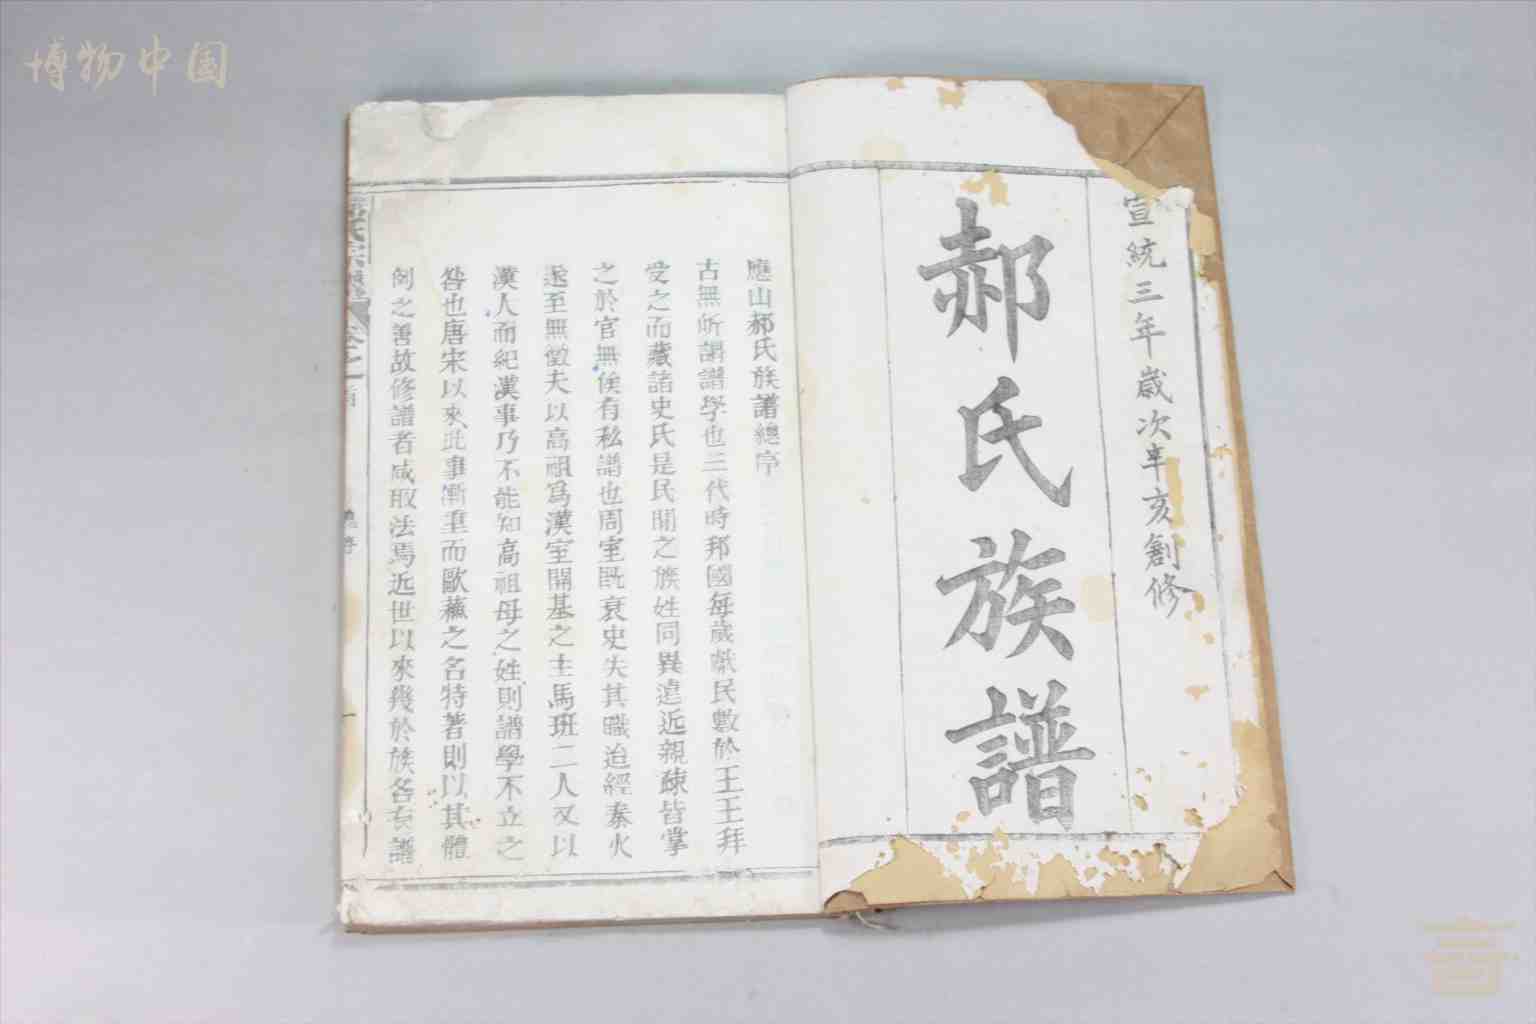 博物中国
宣統三年歲次辛亥創修
郝氏族譜
應山郝氏族譜總序
古無所謂譜學也三代時邦國每歲獻民數於王王拜
受之而藏諸史氏是民間之族姓同異遠近親疎皆掌
之於官無俟有私譜也周室既衰史失其職迨經秦火
遂至無徵夫以高祖爲漢室開基之主馬班二人又以
漢人而紀漢事乃不能知高祖母之姓則譜學不立之
咎也唐宋以來此事漸重而歐蘇之名特著則以其體
例之善故修譜者咸取法焉近世以來幾於族各有譜